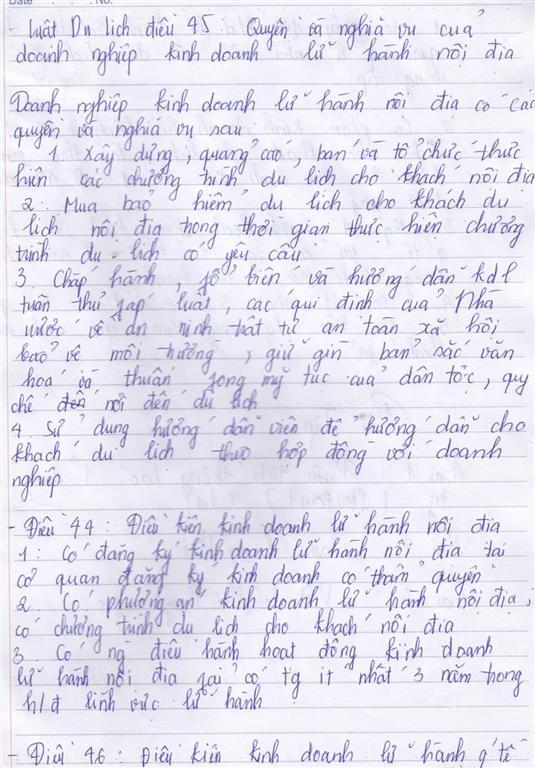 - Luật Du lịch điều 45 Quyền và nghĩa vụ của
doanh nghiệp kinh doanh lữ hành nội địa
Doanh nghiệp kinh doanh lữ hành nội địa có các
quyền và nghĩa vụ sau
1. Xây dựng, quảng cáo, bán và tổ chức thực
hiện các chương trình du lịch cho khách nội địa
2. Mua bảo hiểm du lịch cho khách du
lịch nội địa trong thời gian thực hiện chương
trình du lịch có yêu cầu
3. Chấp hành, fổ biến và hướng dẫn kdl
tuân thủ fáp luật, các qui định của Nhà
nước về an ninh trật tự an toàn xã hội
bảo vệ môi trường, giữ gìn bản sắc văn
hoá và thuần fong mỹ tục của dân tộc, quy
chế nơi đến du lịch
4. Sử dụng hướng dẫn viên để hướng dẫn cho
khách du lịch theo hợp đồng với doanh
nghiệp
- Điều 44: Điều kiện kinh doanh lữ hành nội địa
1: Có đăng ký kinh doanh lữ hành nội địa tại
cơ quan đăng ký kinh doanh có thẩm quyền
2. Có phương án kinh doanh lữ hành nội địa,
có chương trình du lịch cho khách nội địa
3. Có ng điều hành hoạt động kinh doanh
lữ hành nội địa fải có tg ít nhất 3 năm trong
h/đ lĩnh vực lữ hành
- Điều 46: Điều kiện kinh doanh lữ hành q'tế